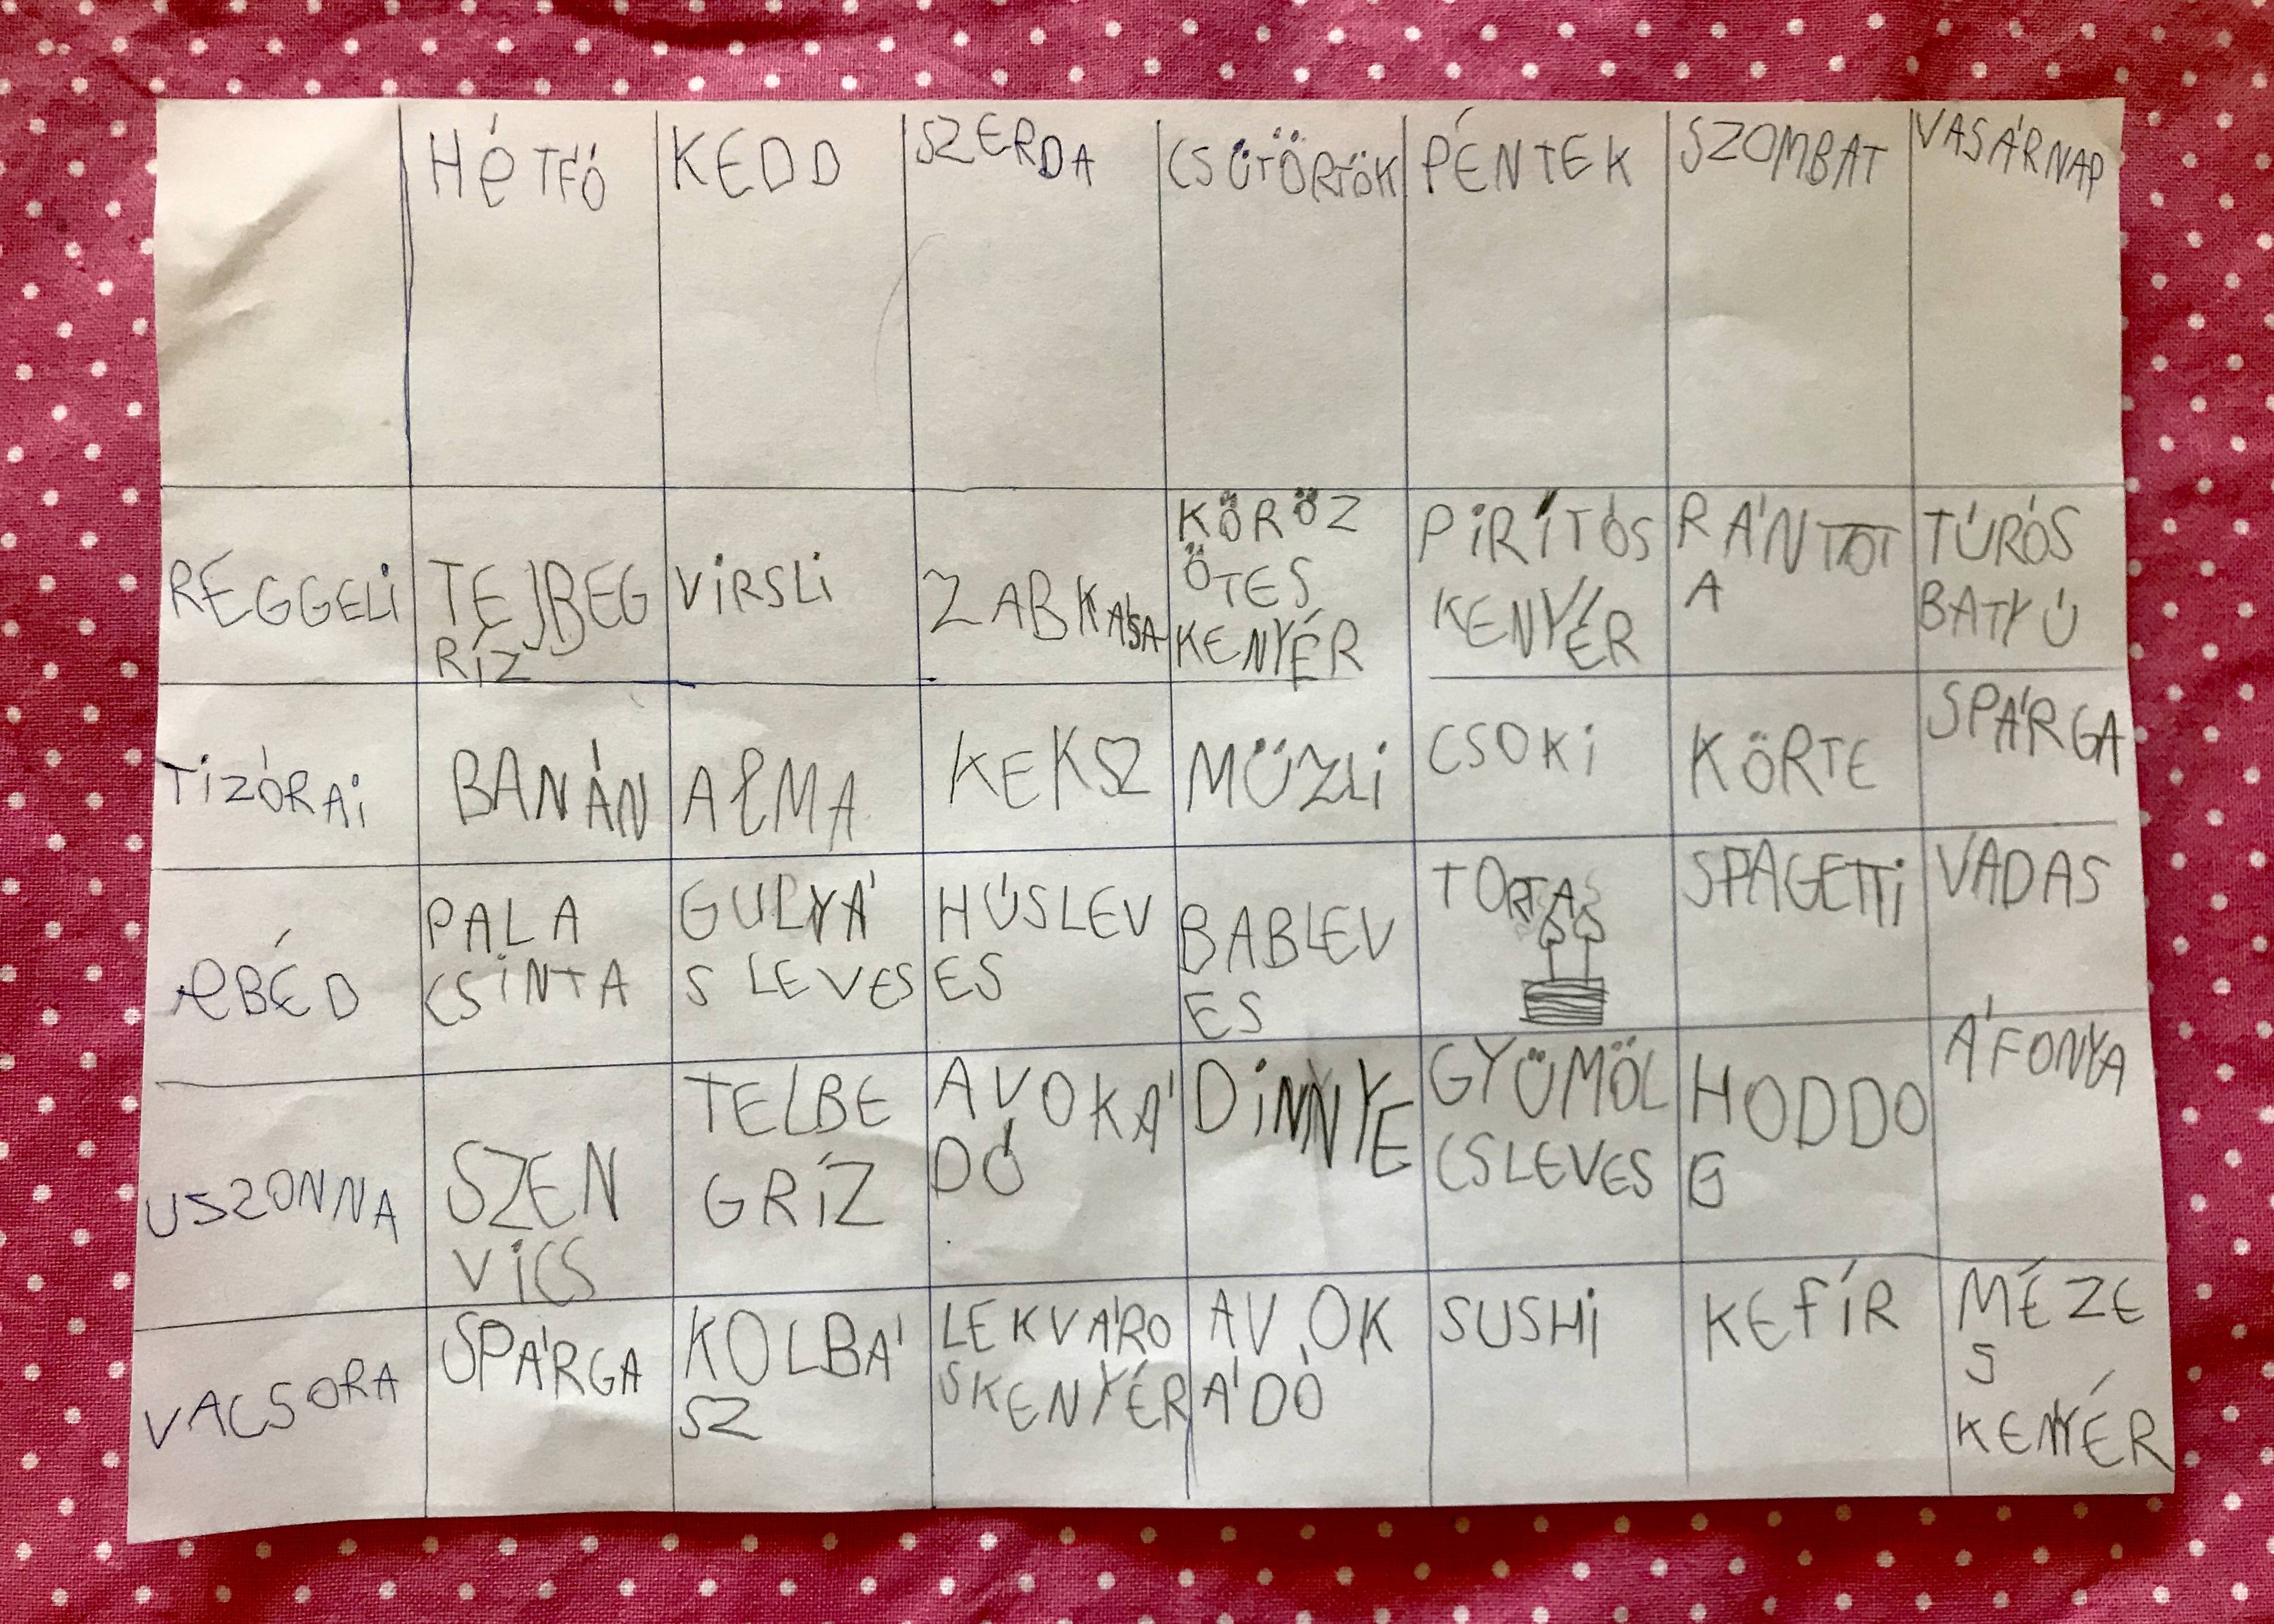 HÉTFŐ KEDD SZERDA CSÜTÖRTÖK PÉNTEK SZOMBAT VASÁRNAP
REGGELI
TEJBEG
RÍZ
VIRSLI
ZABKÁSA
KÖRÖZ
ÖTES
KENYÉR
PIRÍTÓS
KENYÉR
RÁNTOT
A
TÚRÓS
BATYÚ
TÍZÓRAI
BANÁN
ALMA
KEKSZ
MÜZLI
CSOKI
KÖRTE
SPÁRGA
EBÉD
PALA
CSINTA
GULYÁ
S LEVES
HÚSLEV
ES
BABLEV
ES
TORTA
SPAGETTI
VADAS
USZONNA
SZEN
VICS
TELBE
GRÍZ
AVOKÁ
DÓ
DINNYE
GYÜMÖL
CSLEVES
HODDO
G
ÁFONYA
VACSORA
SPÁRGA
KOLBÁ
SZ
LEKVÁRO
SKENYÉR
AVOK
ÁDÓ
SUSHI
KEFÍR
MÉZE
S
KENYÉR